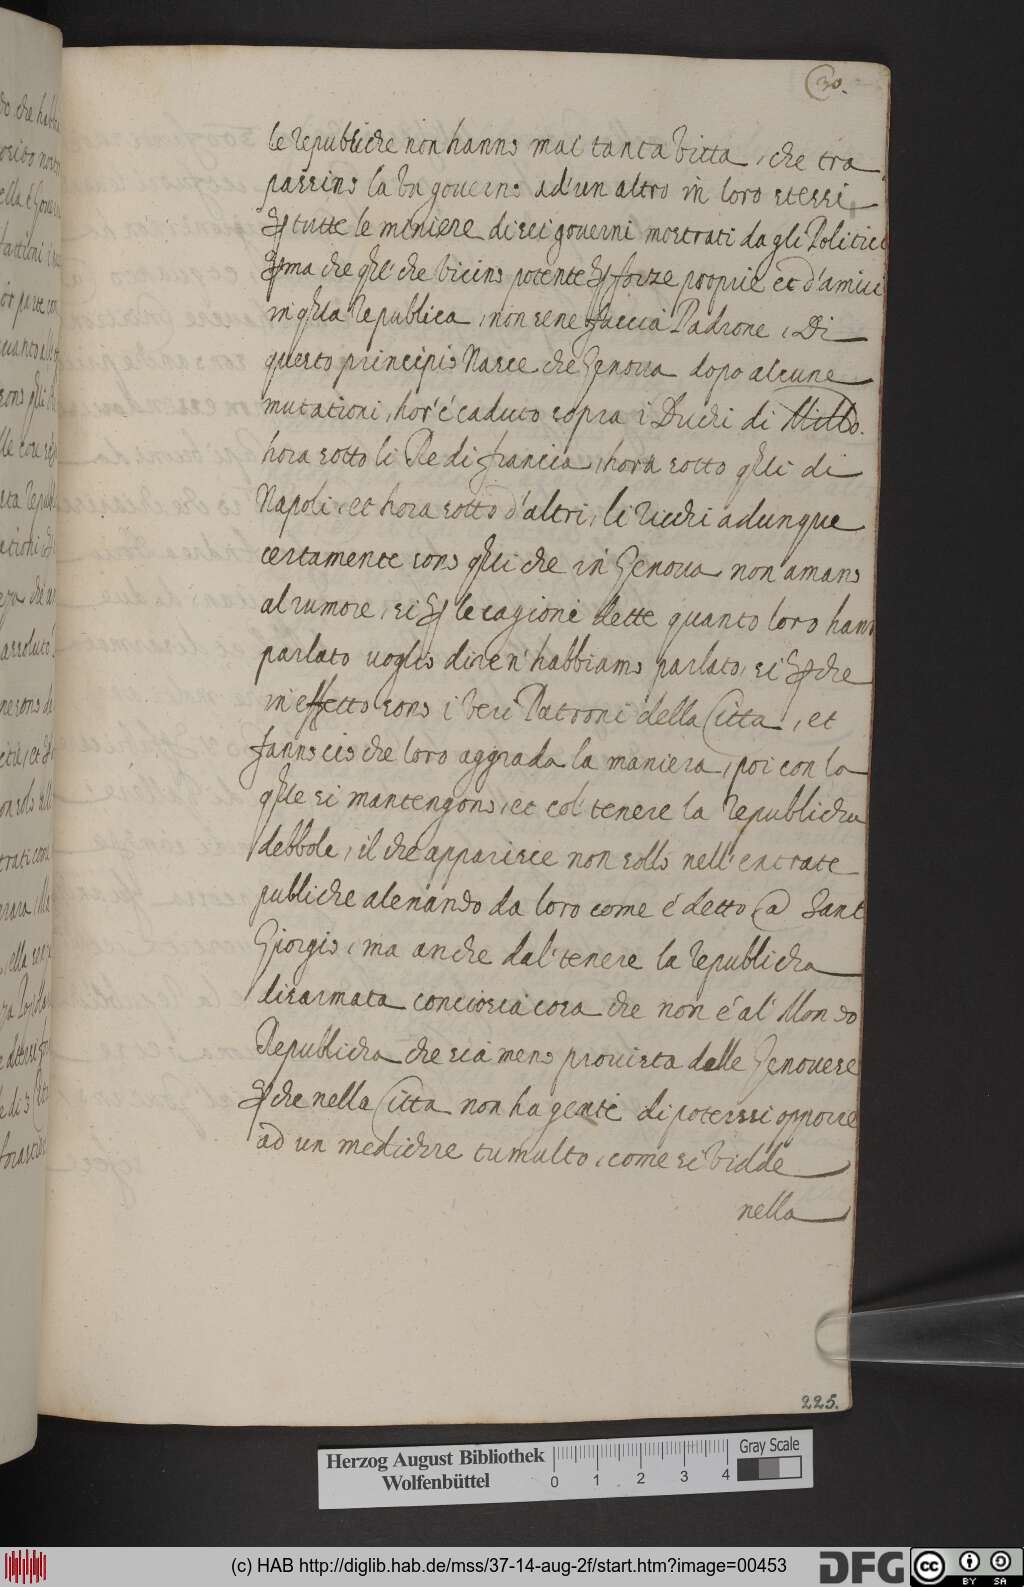 30.
le republiche non hanno mai tanta vitta, che tra
passino la un governo ad'un altro in loro stessi
p tutte le miniere di sei governi mostrati da gli Politici
pma che ql'che vicino potente p forze proprie et d'amici
in qlla Republica, non sene faccia Padrone, Di
questo principio Nasce che Genova dopo alcune
mutationi, hor'é caduto sopra i Duchi di Millo.
hora sotto li Re di francia, hora sotto qlli di
Napoli, et hora sotto d'altri, li ricchi adunque
certamente sono qlli che in Genova non amano
al rumore, si p le cagioni dette quanto loro hano
parlato voglio dire n'habbiamo parlato, si p che
in effetto sono i veri Patroni della Citta, et
fanno cio che loro aggrada la maniera, poi con la
qlle si mantengono, et col'tenere la republicha
debbole, il che apparisce non sollo nell'entrate
publiche alenando da loro come é detto a Sant
Giorgio, ma anche dal'tenere la republicha
disarmata conciosia cosa che non é al' Mondo
Republicha che sia meno provista delle Genovese
p che nella Citta non ha gente di potersi opporre
ad un mediocre tumulto, come si vidde
nella
225.
Herzog August Bibliothek
Wolfenbüttel
0 1 2 3 4
Gray Scale
(c) HAB http://diglib.hab.de/mss/37-14-aug-2f/start.htm?image=00453
DFG
cc BY SA